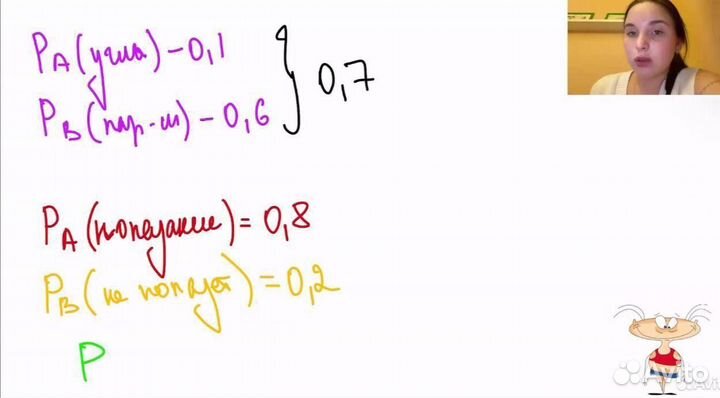 P_A(углы) – 0,1
P_B(пар-м) – 0,6
0,7
P_A(попадание) = 0,8
P_B(не попадёт) = 0,2
P
Avito